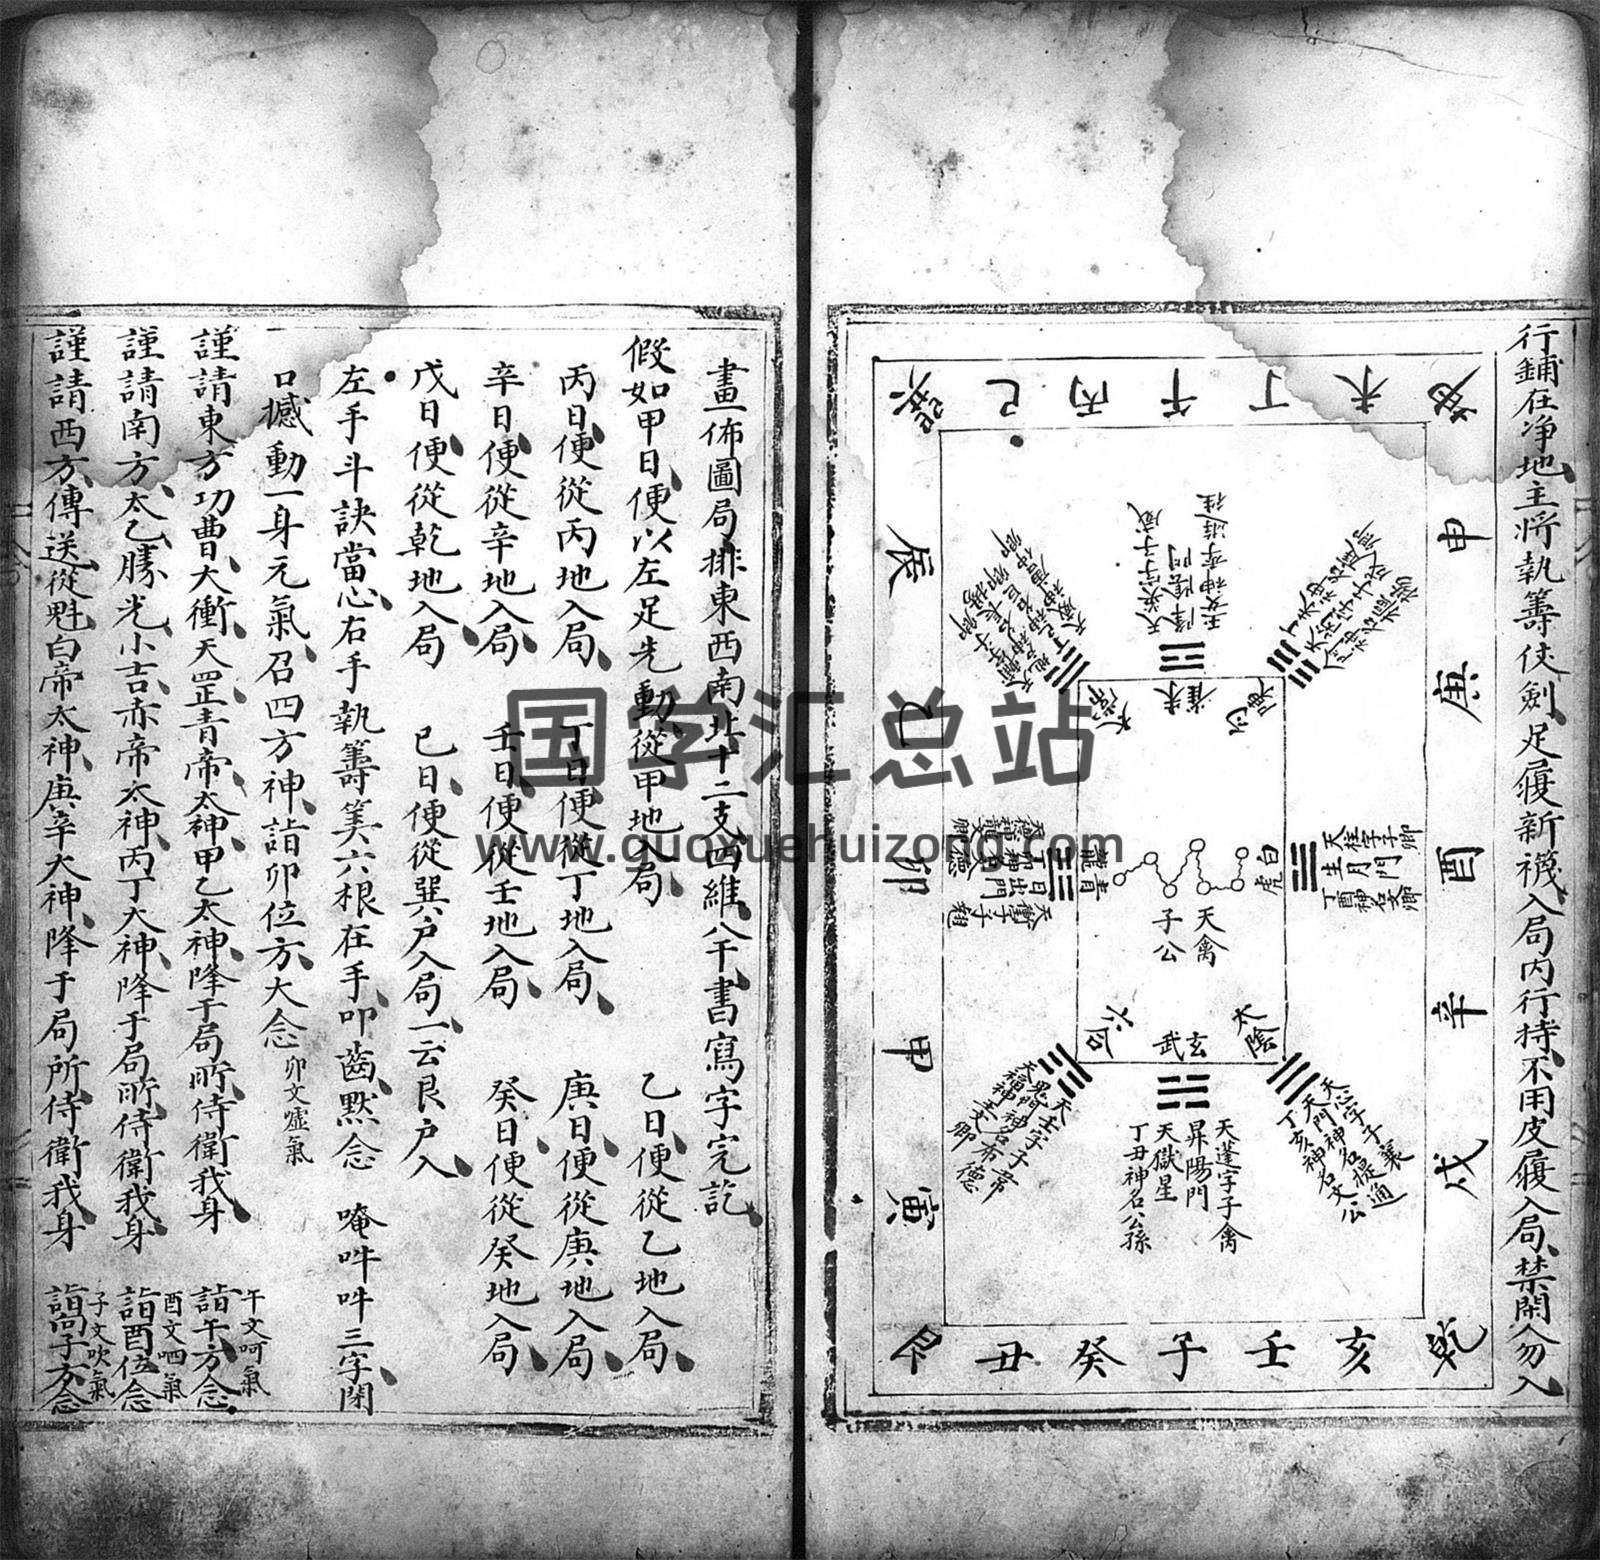 行鋪在净地主將執籌伏劍足履新襪入局内行持不用皮履入局禁閑人勿入
巽巳丙午丁未坤
申庚酉辛戌
乾亥壬子癸丑艮
寅甲卯乙辰
朱雀
白虎
青龍
玄武
太陰
六合
天禽
子公
天柱字子卿
生月門
丁酉神名文卿
天英字子威
天蓬字子禽
昇陽門
天獄星
丁丑神名公孫
天心字子襄
天門神名提通
丁亥神名文公
天任字子常
鬼門神名布德
天衝字子翹
日出門
畫佈圖局排東西南北十二支四維八干書寫字完訖
假如甲日便以左足先動從甲地入局 乙日便從乙地入局
丙日便從丙地入局 丁日便從丁地入局 庚日便從庚地入局
辛日便從辛地入局 壬日便從壬地入局 癸日便從癸地入局
戊日便從乾地入局 巳日便從巽户入局一云艮户入
左手斗訣當心右手執籌筭六根在手叩齒默念 唵吽吽三字閉
口撼動一身元氣召四方神詣卯位方大念 卯文嘘氣
謹請東方功曹大衝天罡青帝太神甲乙太神降于局所侍衛我身 詣午方念 午文呵氣
謹請南方太乙勝光小吉赤帝太神丙丁大神降于局所侍衛我身 詣酉位念 酉文呬氣
謹請西方傳送從魁白帝太神庚辛大神降于局所侍衛我身 詣子方念 子文吹氣
国学汇总站
www.guoxuehuizong.com